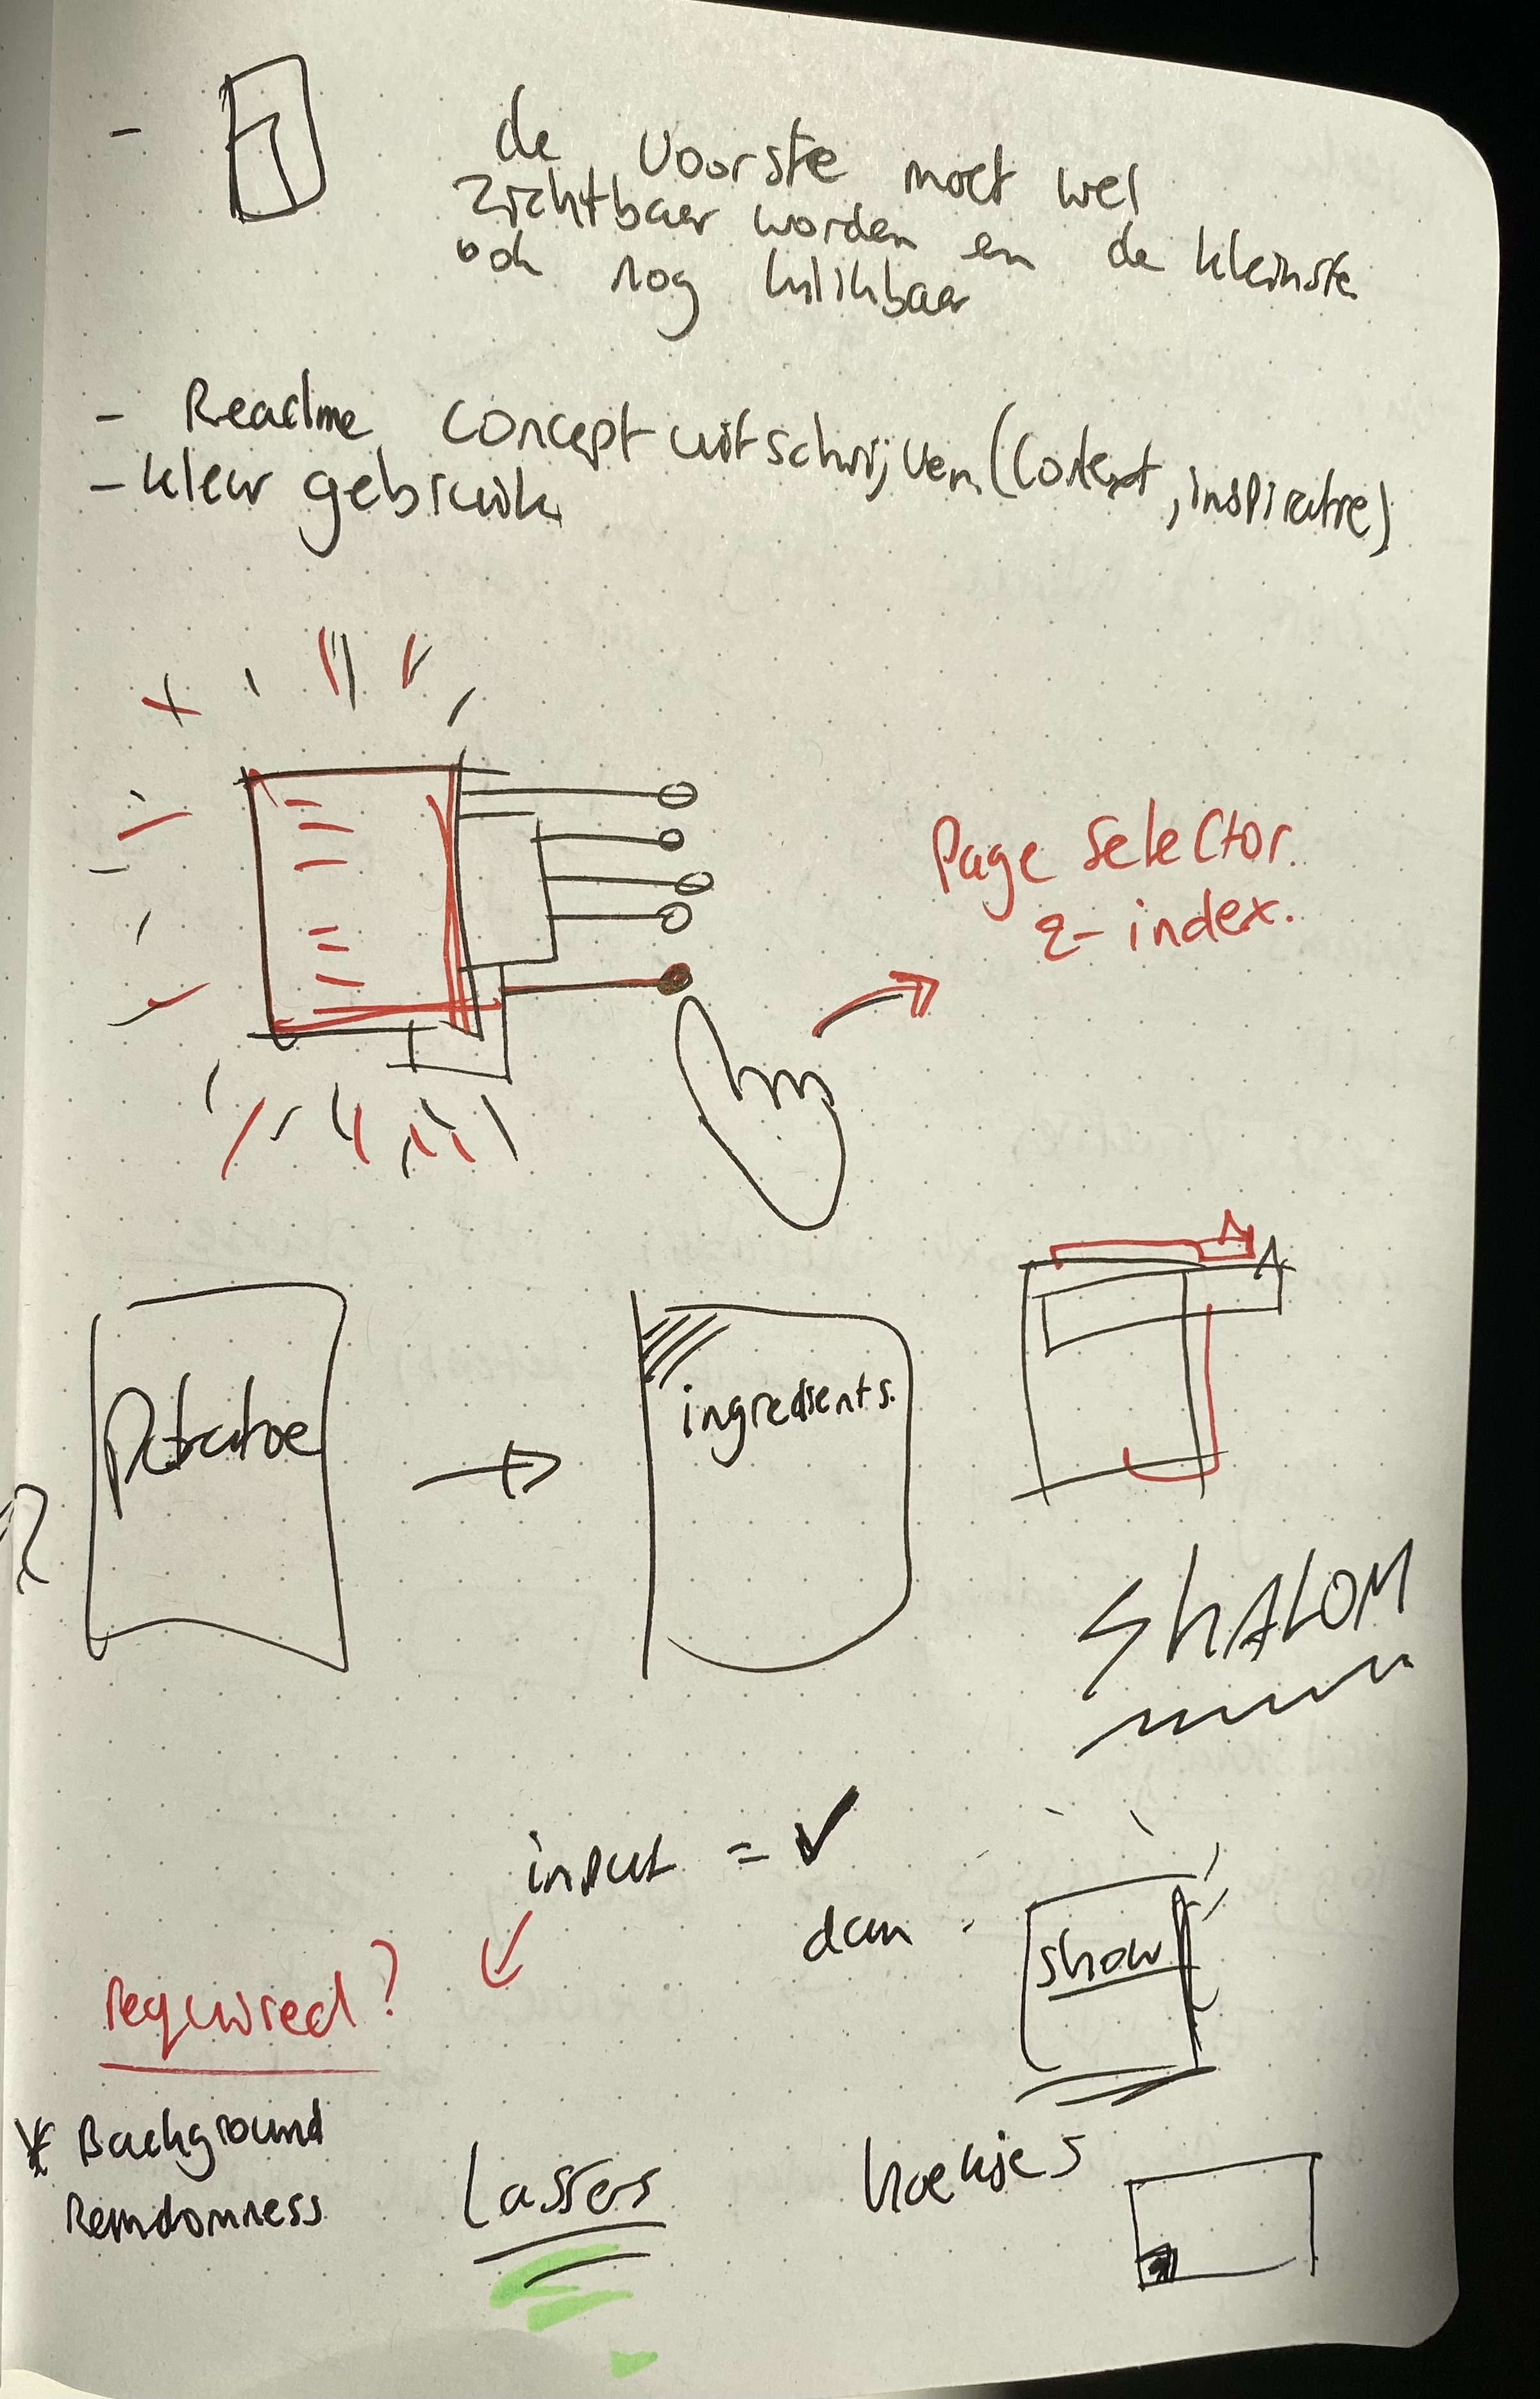 - de voorste moet wel
zichtbaar worden en de kleinste
ook nog klikbaar
- Readme concept uitschrijven (Context, inspiratie)
- kleur gebruik
Page Selector.
z-index.
Potatoe
ingredients.
SHALOM
input = ✓
dan
show
required?
* Background
Randomness
hoekjes